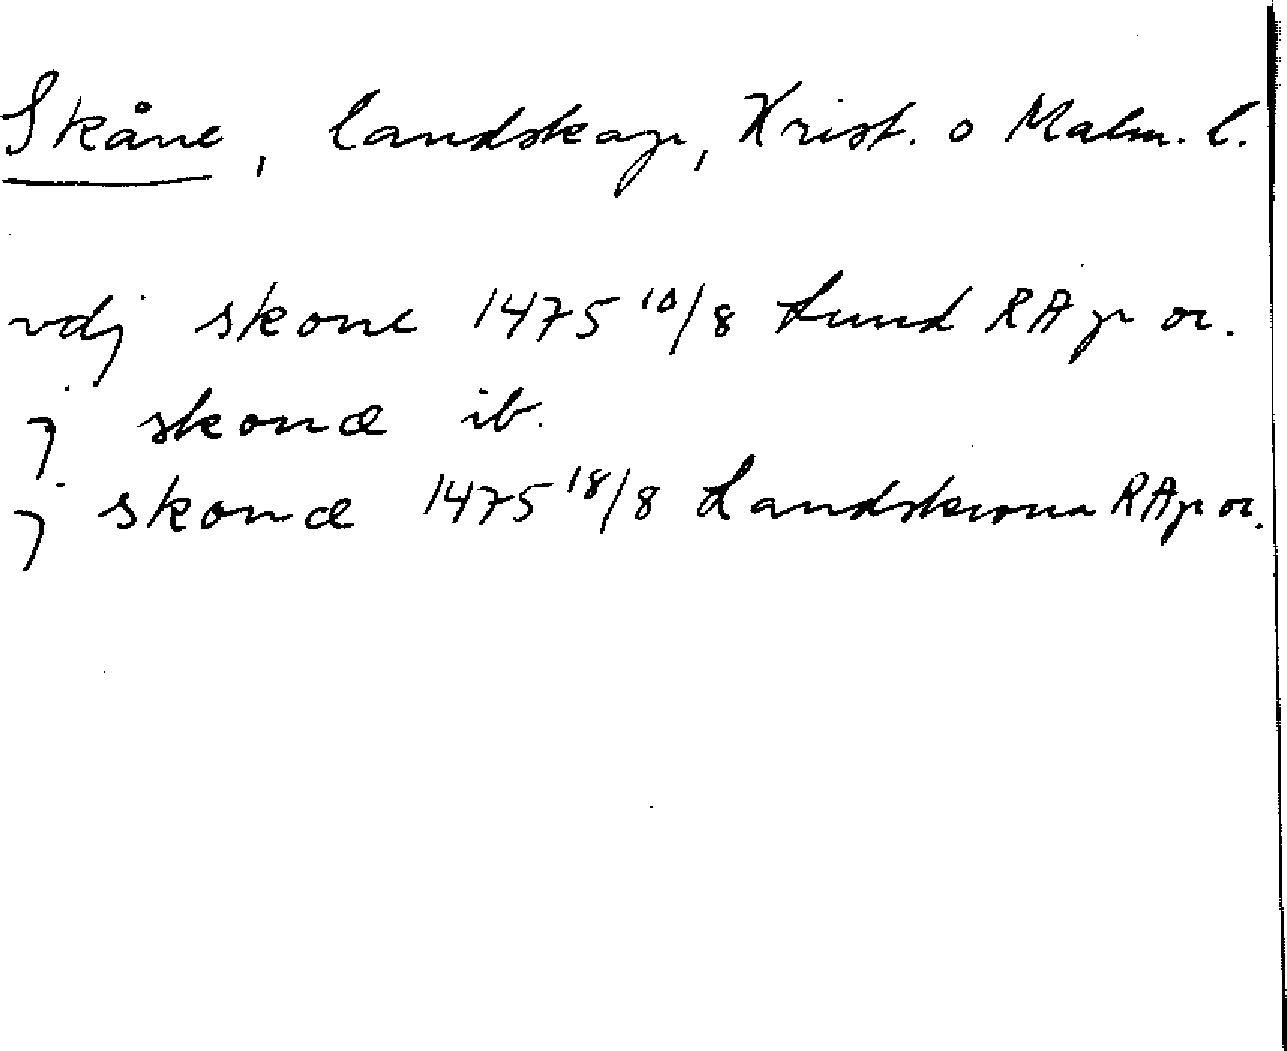 Skåne, landskap, Krist. o Malm. l.
vdj skone 1475 10/8 Lund RA p or.
j skonæ ib.
j skonæ 1475 18/8 Landskrona RAp or.